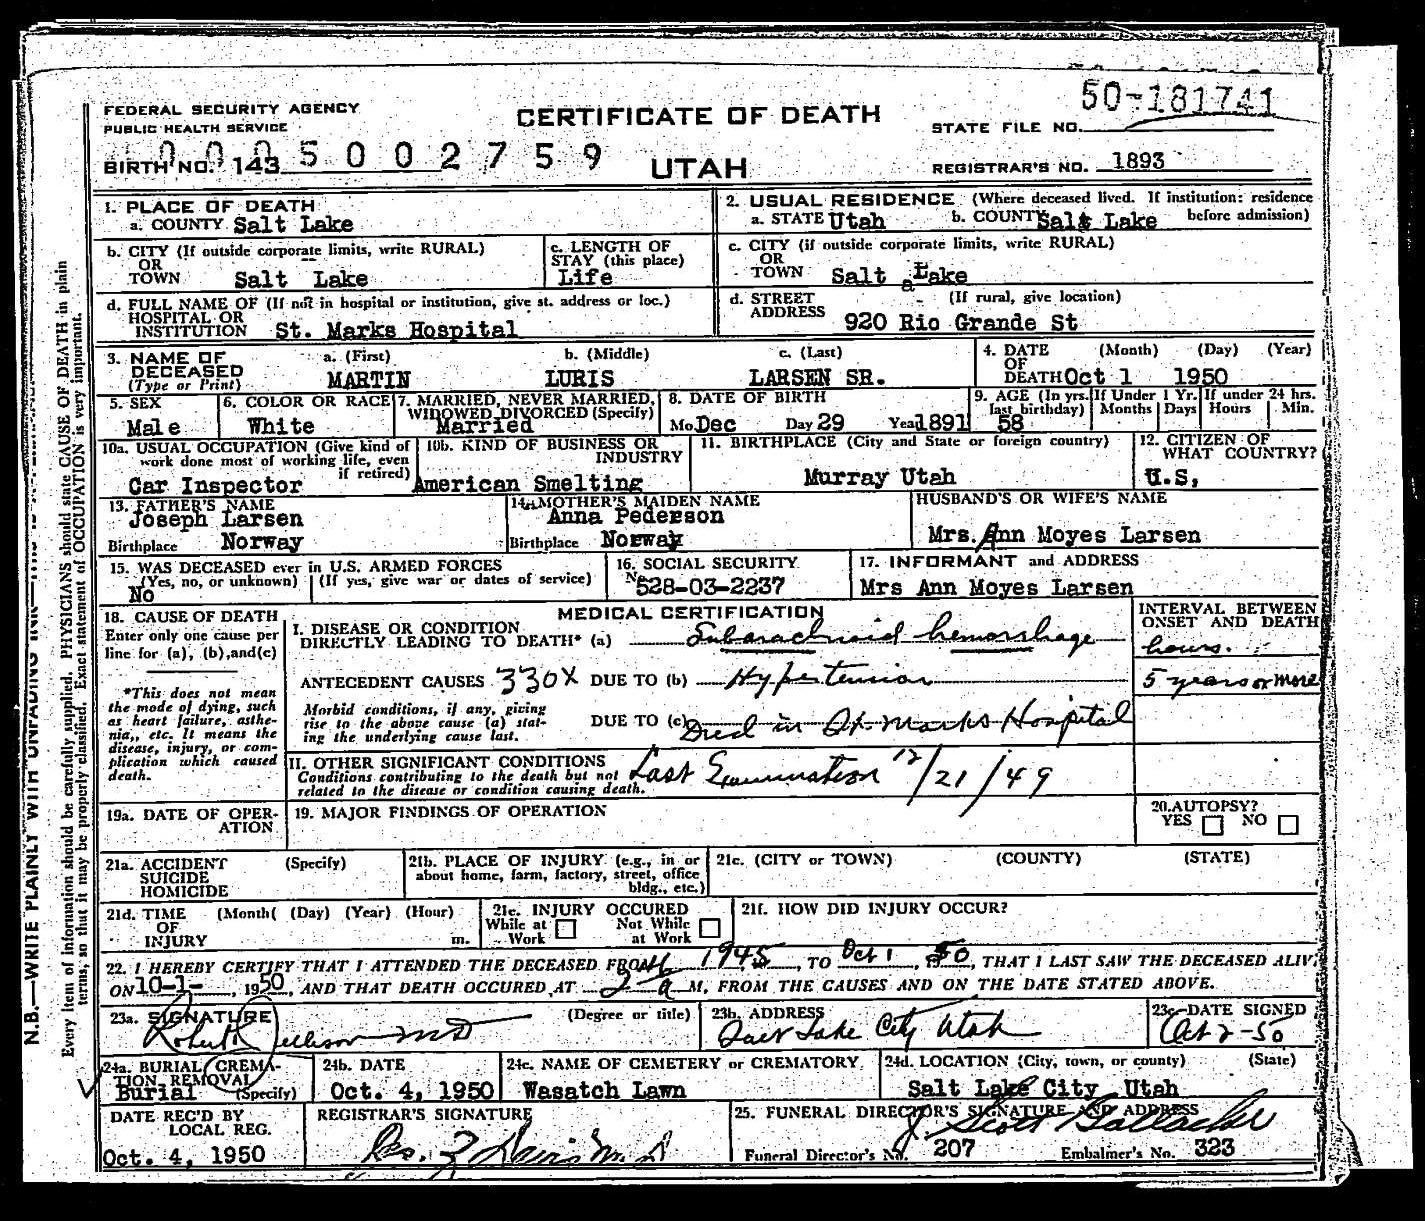 50-181741
FEDERAL SECURITY AGENCY
PUBLIC HEALTH SERVICE
CERTIFICATE OF DEATH
STATE FILE NO.
BIRTH NO. 143
5002759
UTAH
REGISTRAR'S NO. 1893
1. PLACE OF DEATH
a. COUNTY Salt Lake
2. USUAL RESIDENCE (Where deceased lived. If institution: residence before admission)
a. STATE Utah b. COUNTY Salt Lake
b. CITY (If outside corporate limits, write RURAL)
OR
TOWN Salt Lake
c. LENGTH OF
STAY (this place)
Life
c. CITY (if outside corporate limits, write RURAL)
OR
TOWN Salt Lake
d. FULL NAME OF (If not in hospital or institution, give st. address or loc.)
HOSPITAL OR
INSTITUTION St. Marks Hospital
d. STREET (If rural, give location)
ADDRESS 920 Rio Grande St
3. NAME OF
DECEASED
(Type or Print)
a. (First) b. (Middle) c. (Last)
MARTIN LURIS LARSEN SR.
4. DATE (Month) (Day) (Year)
OF
DEATH Oct 1 1950
5. SEX
Male
6. COLOR OR RACE
White
7. MARRIED, NEVER MARRIED,
WIDOWED DIVORCED (Specify)
Married
8. DATE OF BIRTH
Mo. Dec Day 29 Year 1891
9. AGE (In yrs. last birthday) 58
If Under 1 Yr. Months Days
If under 24 hrs. Hours Min.
10a. USUAL OCCUPATION (Give kind of
work done most of working life, even
if retired)
Car Inspector
10b. KIND OF BUSINESS OR
INDUSTRY
American Smelting
11. BIRTHPLACE (City and State or foreign country)
Murray Utah
12. CITIZEN OF
WHAT COUNTRY?
U.S,
13. FATHER'S NAME
Joseph Larsen
Birthplace Norway
14. MOTHER'S MAIDEN NAME
Anna Pederson
Birthplace Norway
HUSBAND'S OR WIFE'S NAME
Mrs. Ann Moyes Larsen
15. WAS DECEASED ever in U.S. ARMED FORCES
(Yes, no, or unknown) (If yes, give war or dates of service)
No
16. SOCIAL SECURITY
528-03-2237
17. INFORMANT and ADDRESS
Mrs Ann Moyes Larsen
18. CAUSE OF DEATH
Enter only one cause per
line for (a), (b),and(c)
*This does not mean
the mode of dying, such
as heart failure, asthe-
nia,, etc. It means the
disease, injury, or com-
plication which caused
death.
MEDICAL CERTIFICATION
I. DISEASE OR CONDITION
DIRECTLY LEADING TO DEATH* (a) Subarachnoid hemorrhage
ANTECEDENT CAUSES 330X DUE TO (b) Hypertension
Morbid conditions, if any, giving
rise to the above cause (a) stat-
ing the underlying cause last.
DUE TO (c) Died in St. Marks Hospital
II. OTHER SIGNIFICANT CONDITIONS
Conditions contributing to the death but not
related to the disease or condition causing death.
Last Examination 12/21/49
INTERVAL BETWEEN
ONSET AND DEATH
hours.
5 years or more
19a. DATE OF OPER-
ATION
19. MAJOR FINDINGS OF OPERATION
20. AUTOPSY?
YES NO
21a. ACCIDENT (Specify)
SUICIDE
HOMICIDE
21b. PLACE OF INJURY (e.g., in or
about home, farm, factory, street, office
bldg., etc.)
21c. (CITY or TOWN) (COUNTY) (STATE)
21d. TIME (Month( (Day) (Year) (Hour)
OF
INJURY m.
21e. INJURY OCCURED
While at Work Not While at Work
21f. HOW DID INJURY OCCUR?
22. I HEREBY CERTIFY THAT I ATTENDED THE DECEASED FROM 1945, TO Oct 1, 50, THAT I LAST SAW THE DECEASED ALIVE
ON 10-1-, 1950, AND THAT DEATH OCCURED AT 2 a M, FROM THE CAUSES AND ON THE DATE STATED ABOVE.
23a. SIGNATURE (Degree or title)
Robert MD
23b. ADDRESS
Salt Lake City Utah
23c. DATE SIGNED
Oct 2-50
24a. BURIAL, CREMA-
TION, REMOVAL
(Specify)
Burial
24b. DATE
Oct. 4, 1950
24c. NAME OF CEMETERY or CREMATORY
Wasatch Lawn
24d. LOCATION (City, town, or county) (State)
Salt Lake City Utah
DATE REC'D BY
LOCAL REG.
Oct. 4, 1950
REGISTRAR'S SIGNATURE
25. FUNERAL DIRECTOR'S SIGNATURE AND ADDRESS
J. Scott Gallacher
Funeral Director's No. 207 Embalmer's No. 323
N.B.—WRITE PLAINLY WITH UNFADING INK
Every item of information should be carefully supplied. PHYSICIANS should state CAUSE OF DEATH in plain
terms, so that it may be properly classified. Exact statement of OCCUPATION is very important.